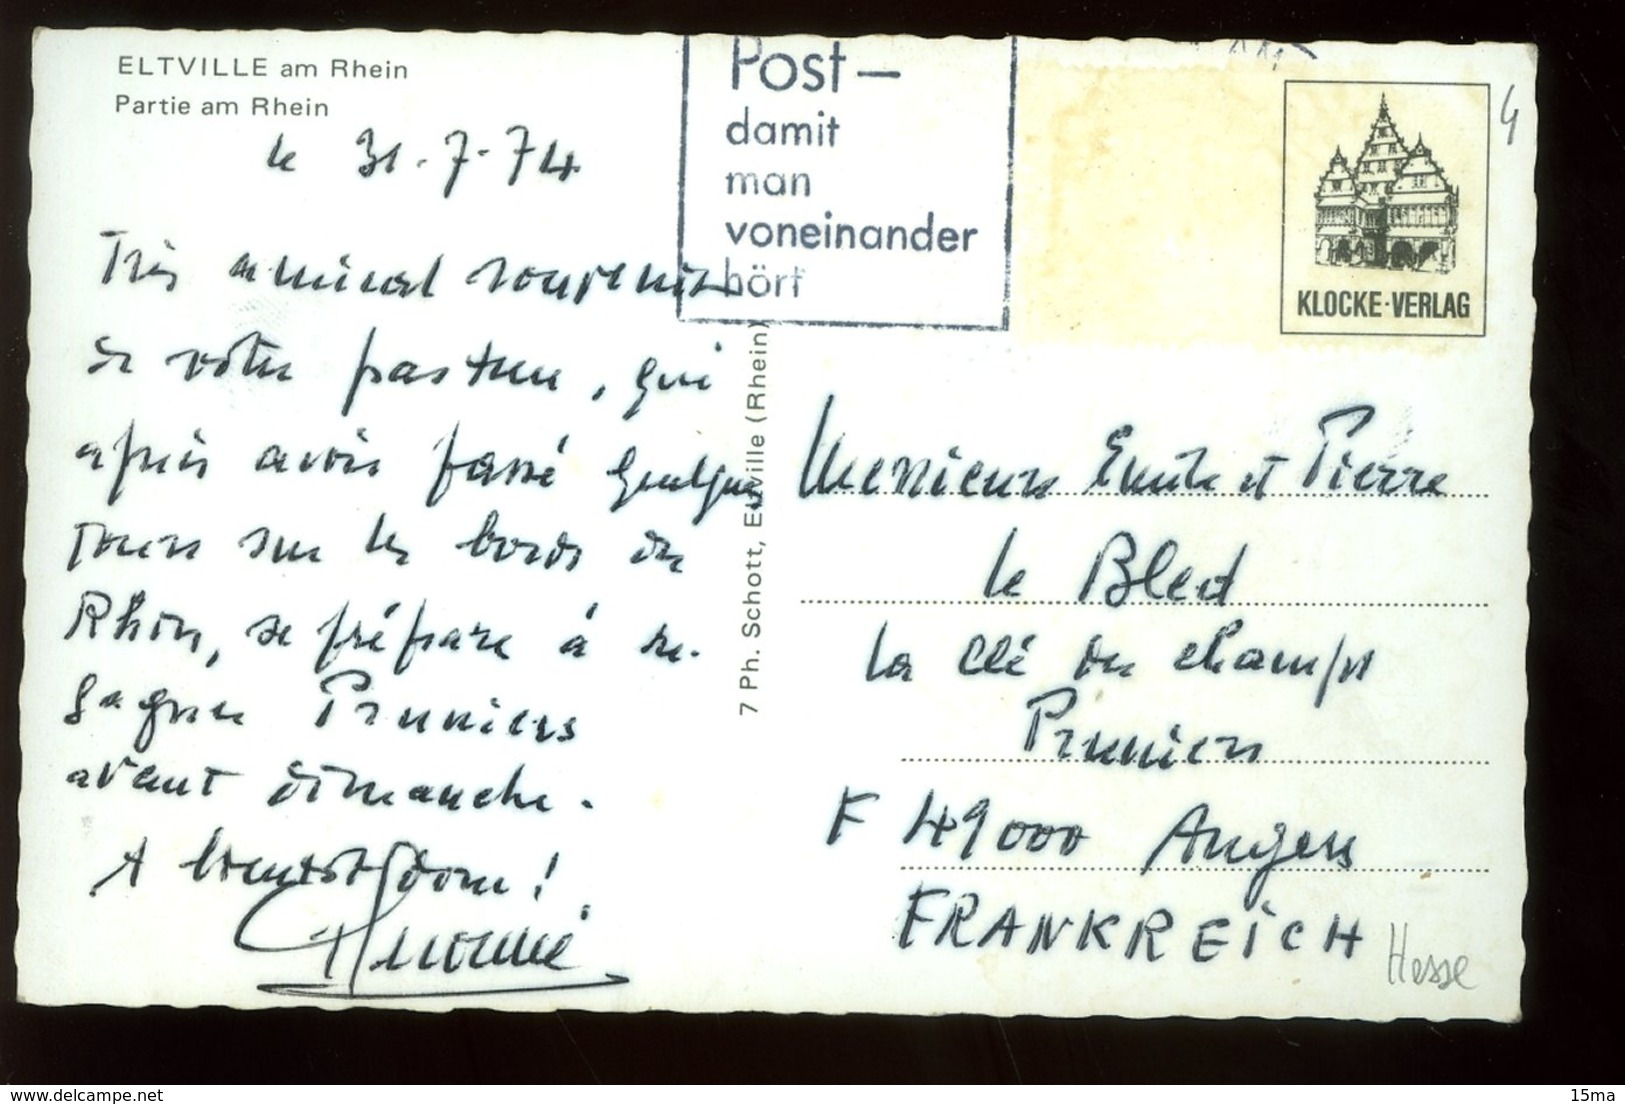 ELTVILLE am Rhein
Partie am Rhein
le 31-7-74
Très amical souvenir
de votre pasteur, qui
après avoir passé quelques
jours sur les bords du
Rhin, se prépare à re-
gagner Pruniers
avant dimanche.
A bientôt donc !
Post –
damit
man
voneinander
hört
KLOCKE-VERLAG
4
7 Ph. Schott, Eltville (Rhein)
Messieurs Emile et Pierre
le Bled
la Clé des champs
Pruniers
F 49000 Angers
FRANKREICH
Hesse
delcampe.net
15ma